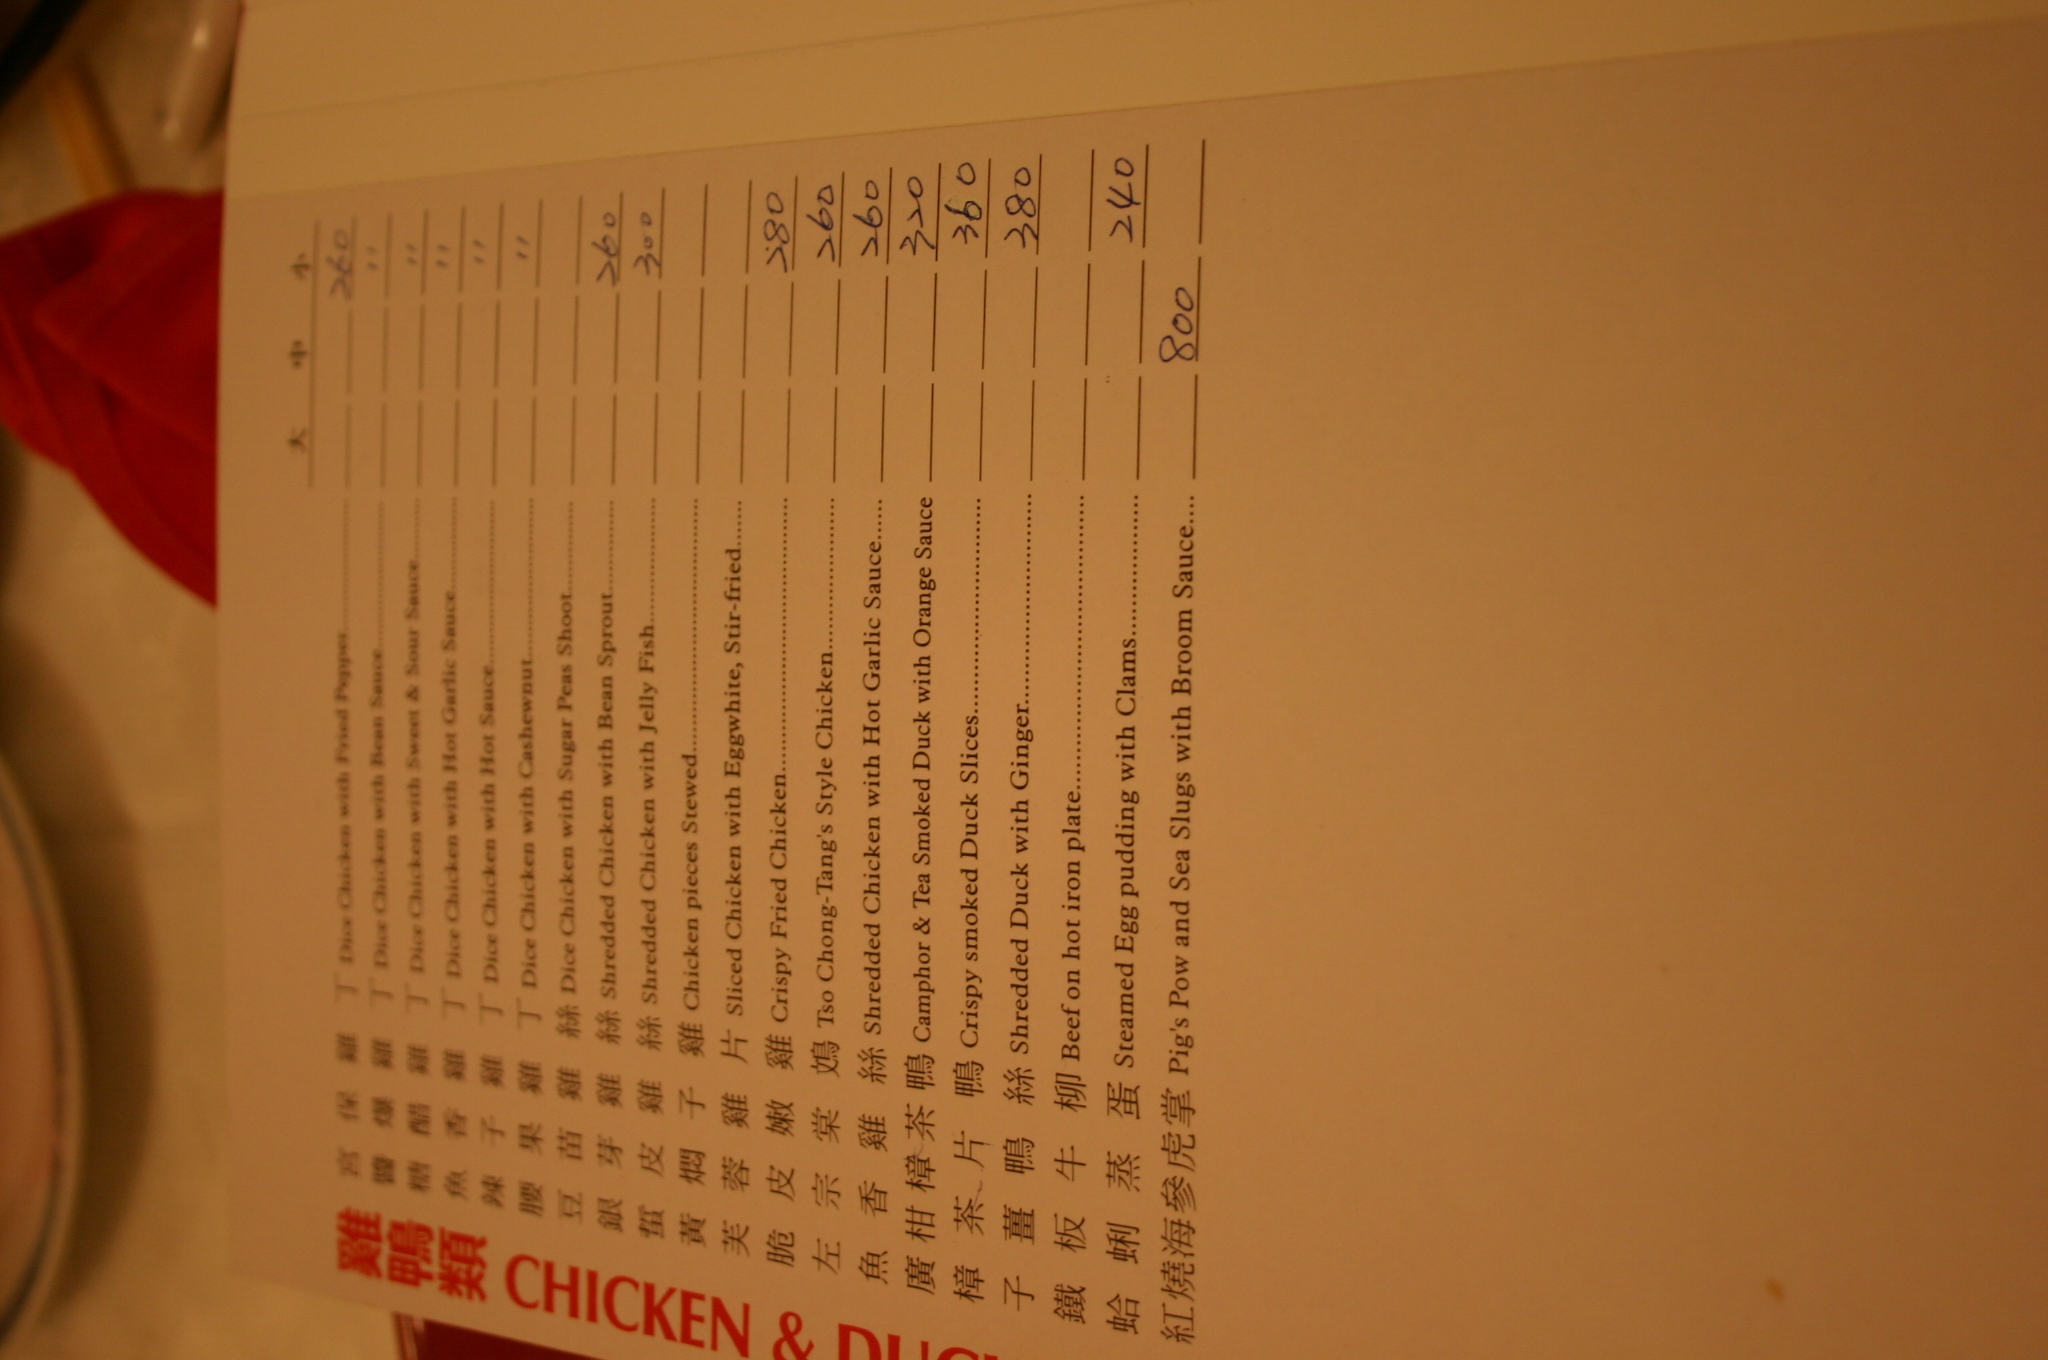 雞鴨類 CHICKEN & DUC
大 中 小
宮保雞丁 Dice Chicken with Fried Pepper 260
醬爆雞丁 Dice Chicken with Bean Sauce 〃
糖醋雞丁 Dice Chicken with Sweet & Sour Sauce 〃
魚香雞丁 Dice Chicken with Hot Garlic Sauce 〃
辣子雞丁 Dice Chicken with Hot Sauce 〃
腰果雞丁 Dice Chicken with Cashewnut 〃
豆苗雞絲 Dice Chicken with Sugar Peas Shoot
銀芽雞絲 Shredded Chicken with Bean Sprout 260
蜇皮雞絲 Shredded Chicken with Jelly Fish 300
黃燜子雞 Chicken pieces Stewed
芙蓉雞片 Sliced Chicken with Eggwhite, Stir-fried
脆皮嫩雞 Crispy Fried Chicken 280
左宗棠鷄 Tso Chong-Tang's Style Chicken 260
魚香雞絲 Shredded Chicken with Hot Garlic Sauce 260
廣柑樟茶鴨 Camphor & Tea Smoked Duck with Orange Sauce 320
樟茶片鴨 Crispy smoked Duck Slices 360
子薑鴨絲 Shredded Duck with Ginger 380
鐵板牛柳 Beef on hot iron plate
蛤蜊蒸蛋 Steamed Egg pudding with Clams 240
紅燒海參虎掌 Pig's Pow and Sea Slugs with Broom Sauce 800